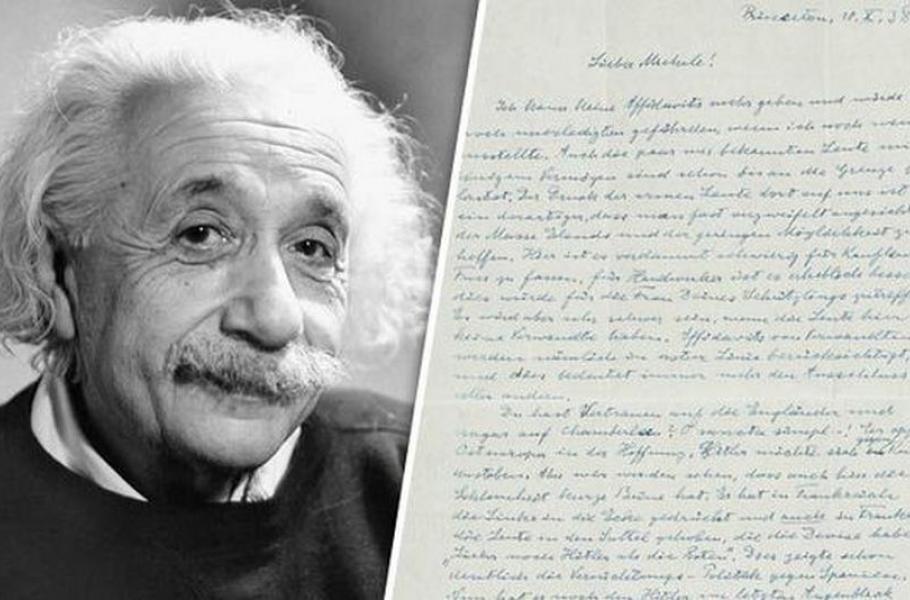 Princeton, 10. X. 38
Lieber Michele!
Ich kann keine Affidavits mehr geben und würde
noch unerledigten gefährden, wenn ich noch
ausstellte. Auch die paar mir bekannten Leute mit
Vermögen sind schon bis an die Grenze
Der Druck der armen Leute dort auf uns ist
ein derartiger, dass man fast verzweifelt angesichts
der Masse Elends und der geringen Möglichkeit zu
helfen. Hier ist es verdammt schwierig für Kaufleute
Fuss zu fassen, für Handwerker ist es erheblich besser
dies würde für die Frau Deines Schützlings
Es wird aber sehr schwer sein, wenn die Leute hier
keine Verwandte haben. Affidavits von Verwandten
werden nämlich in erster Linie berücksichtigt,
und dies bedeutet immer mehr den Ausschluss
aller andern.
Du hast Vertrauen auf die Engländer und
sogar auf Chamberlain? O sancta simpl-!
Osteuropa in der Hoffnung, Hitler möchte sich
austoben. Aber wir werden sehen, dass auch hier die
Schlauheit kurze Beine hat. Er hat in Frankreich
die Linke in die Ecke gedrückt und auch in
die Leute in den Sattel gehoben, die die Devise haben
"Lieber noch Hitler als die Roten". Dies zeigte schon
deutlich die Vernichtungs-Politik gegen Spanien.
Nun hat er noch den Hitler im letzten Augenblick